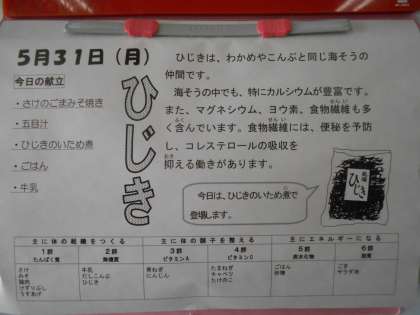 5月31日(月)
今日の献立
・さけのごまみそ焼き
・五目汁
・ひじきのいため煮
・ごはん
・牛乳
ひじき
ひじきは、わかめやこんぶと同じ海そうの
仲間です。
海そうの中でも、特にカルシウムが豊富です。
また、マグネシウム、ヨウ素、食物繊維も多
く含んでいます。食物繊維には、便秘を予防
し、コレステロールの吸収を
抑える働きがあります。
今日は、ひじきのいため煮で
登場します。
ひじき
主に体の組織をつくる
主に体の調子を整える
主にエネルギーになる
1群 2群 3群 4群 5群 6群
たんぱく質 無機質 ビタミンA ビタミンC 炭水化物 脂質
さけ
みそ
鶏肉
けずりぶし
うすあげ
牛乳
だしこんぶ
ひじき
青ねぎ
にんじん
たまねぎ
キャベツ
たけのこ
ごはん
砂糖
ごま
サラダ油